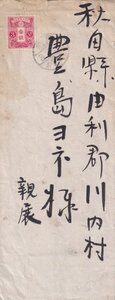 秋田縣由利郡川内村
豊島ヨネ様
親展